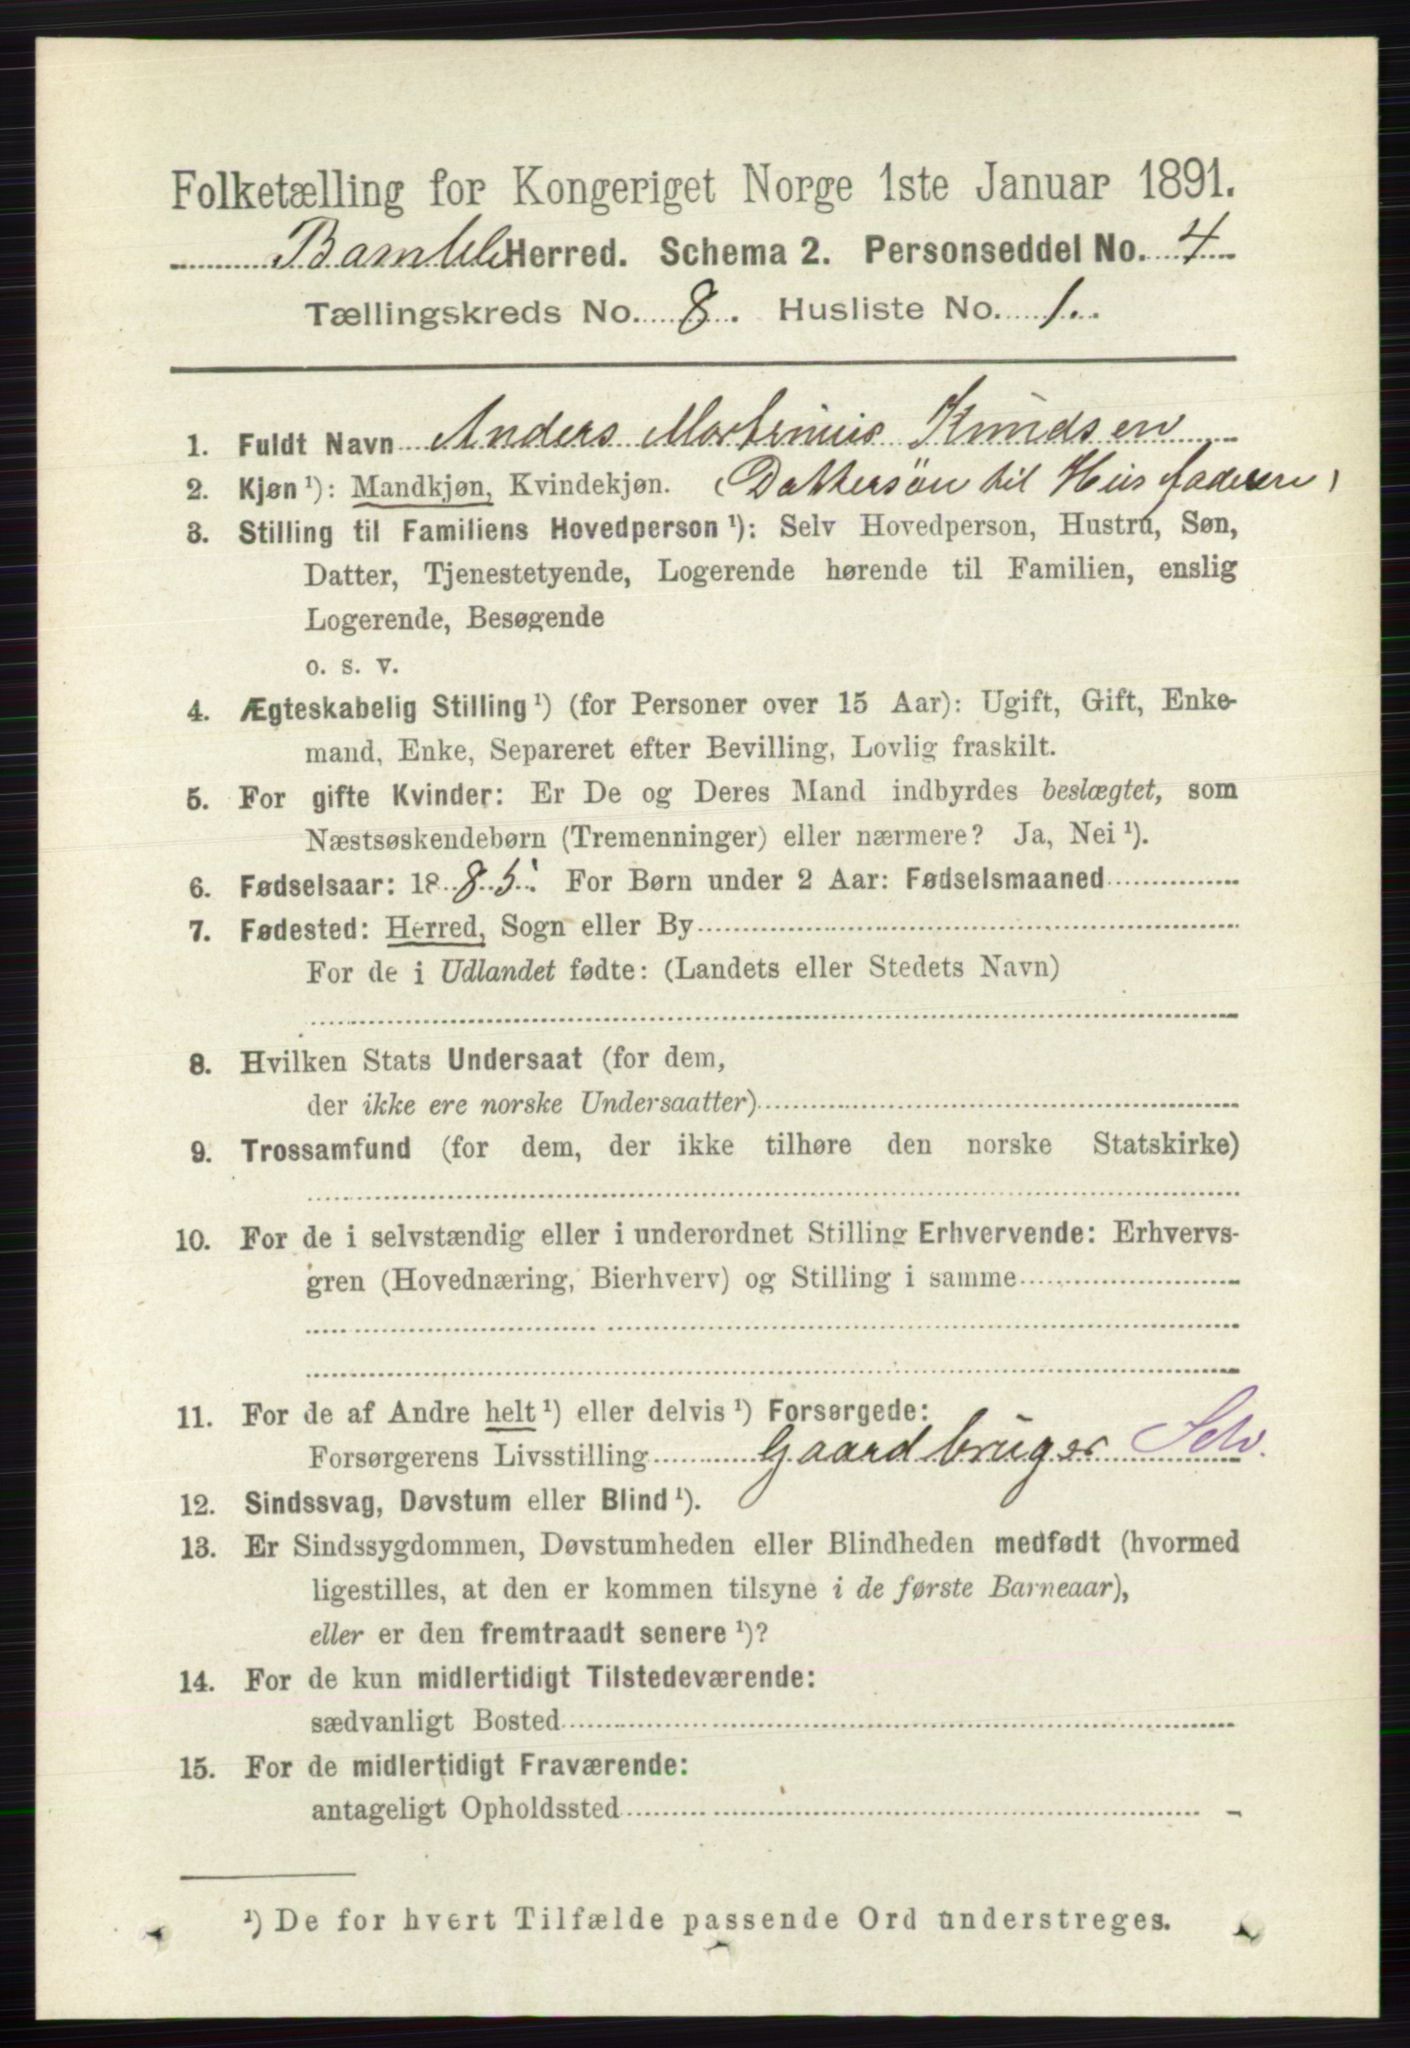 Folketælling for Kongeriget Norge 1ste Januar 1891.
Bamble Herred. Schema 2. Personseddel No. 4
Tællingskreds No. 8. Husliste No. 1.
1. Fuldt Navn Anders Martinius Knudsen
2. Kjøn¹): Mandkjøn, Kvindekjøn. (Dattersøn til Husfaderen)
3. Stilling til Familiens Hovedperson¹): Selv Hovedperson, Hustru, Søn,
Datter, Tjenestetyende, Logerende hørende til Familien, enslig
Logerende, Besøgende
o. s. v.
4. Ægteskabelig Stilling¹) (for Personer over 15 Aar): Ugift, Gift, Enke-
mand, Enke, Separeret efter Bevilling, Lovlig fraskilt.
5. For gifte Kvinder: Er De og Deres Mand indbyrdes beslægtet, som
Næstsøskendebørn (Tremenninger) eller nærmere? Ja, Nei¹).
6. Fødselsaar: 1885. For Børn under 2 Aar: Fødselsmaaned
7. Fødested: Herred, Sogn eller By
For de i Udlandet fødte: (Landets eller Stedets Navn)
8. Hvilken Stats Undersaat (for dem,
der ikke ere norske Undersaatter)
9. Trossamfund (for dem, der ikke tilhøre den norske Statskirke)
10. For de i selvstændig eller i underordnet Stilling Erhvervende: Erhvervs-
gren (Hovednæring, Bierhverv) og Stilling i samme
11. For de af Andre helt¹) eller delvis¹) Forsørgede:
Forsørgerens Livsstilling Gaardbruger Selv.
12. Sindssvag, Døvstum eller Blind¹).
13. Er Sindssygdommen, Døvstumheden eller Blindheden medfødt (hvormed
ligestilles, at den er kommen tilsyne i de første Barneaar),
eller er den fremtraadt senere¹)?
14. For de kun midlertidigt Tilstedeværende:
sædvanligt Bosted
15. For de midlertidigt Fraværende:
antageligt Opholdssted
¹) De for hvert Tilfælde passende Ord understreges.